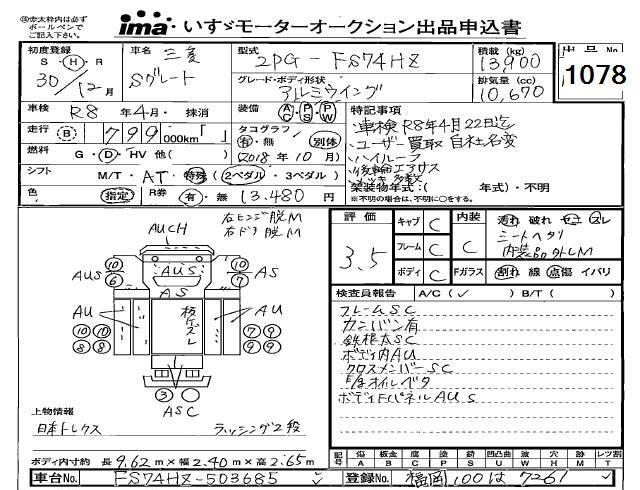 ㊟赤太枠内は必ず
ボールペンで
ご記入下さい。
ima いすゞモーターオークション出品申込書
初度登録 S・H・R 30/12月
車名 三菱 Sグレート
型式 2PG-FS74HZ
積載(kg) 13,900
出品No 1078
グレード・ボディ形状 アルミウイング
排気量(cc) 10,670
車検 R8年4月・抹消
装備 AC PS PW
特記事項
走行 B 799 000km「 」
タコグラフ 有・無 別体
(2018年10月)
燃料 G・D・HV 他( )
シフト M/T・AT・特殊(2ペダル・3ペダル)
色 指定
R券 有・無 13.480円
・車検R8年4月22日迄
・ユーザー買取 自社名変
・ハイルーフ
・後輪エアサス
・メッキ多数
架装物年式( 年式)・不明
※不明の場合は、不明に○をする。
右ヒンジ脱M
右ドラ脱M
AUCH
AUS
AS
AUS 10 6
10 9 AS
AS
AU
10 10
8 8
AU
7 9
9 9
3
ASC
評価 3.5
キャブ C
フレーム C
ボディ C
内装 C
Fガラス
汚れ 破れ ヤニ スレ
シートヘタリ
内装品外しM
割れ 線 点傷 イバリ
検査員報告 A/C(✓) B/T( )
フレームSC
カンバン有
鉄根太SC
ボディ内AU
クロスメンバーSC
E/gオイルベタ
ボディFパネルAUS
上物情報
日本トレクス
ラッシング2段
ボディ内寸約 長9.62m×幅2.40m×高2.65m
記号 傷A 板金B 腐C 塗P 錆S 凹凸曲U 波W 穴H 跡M レツ割T
車台No. FS74HZ-503685
登録No. 福岡100は7261